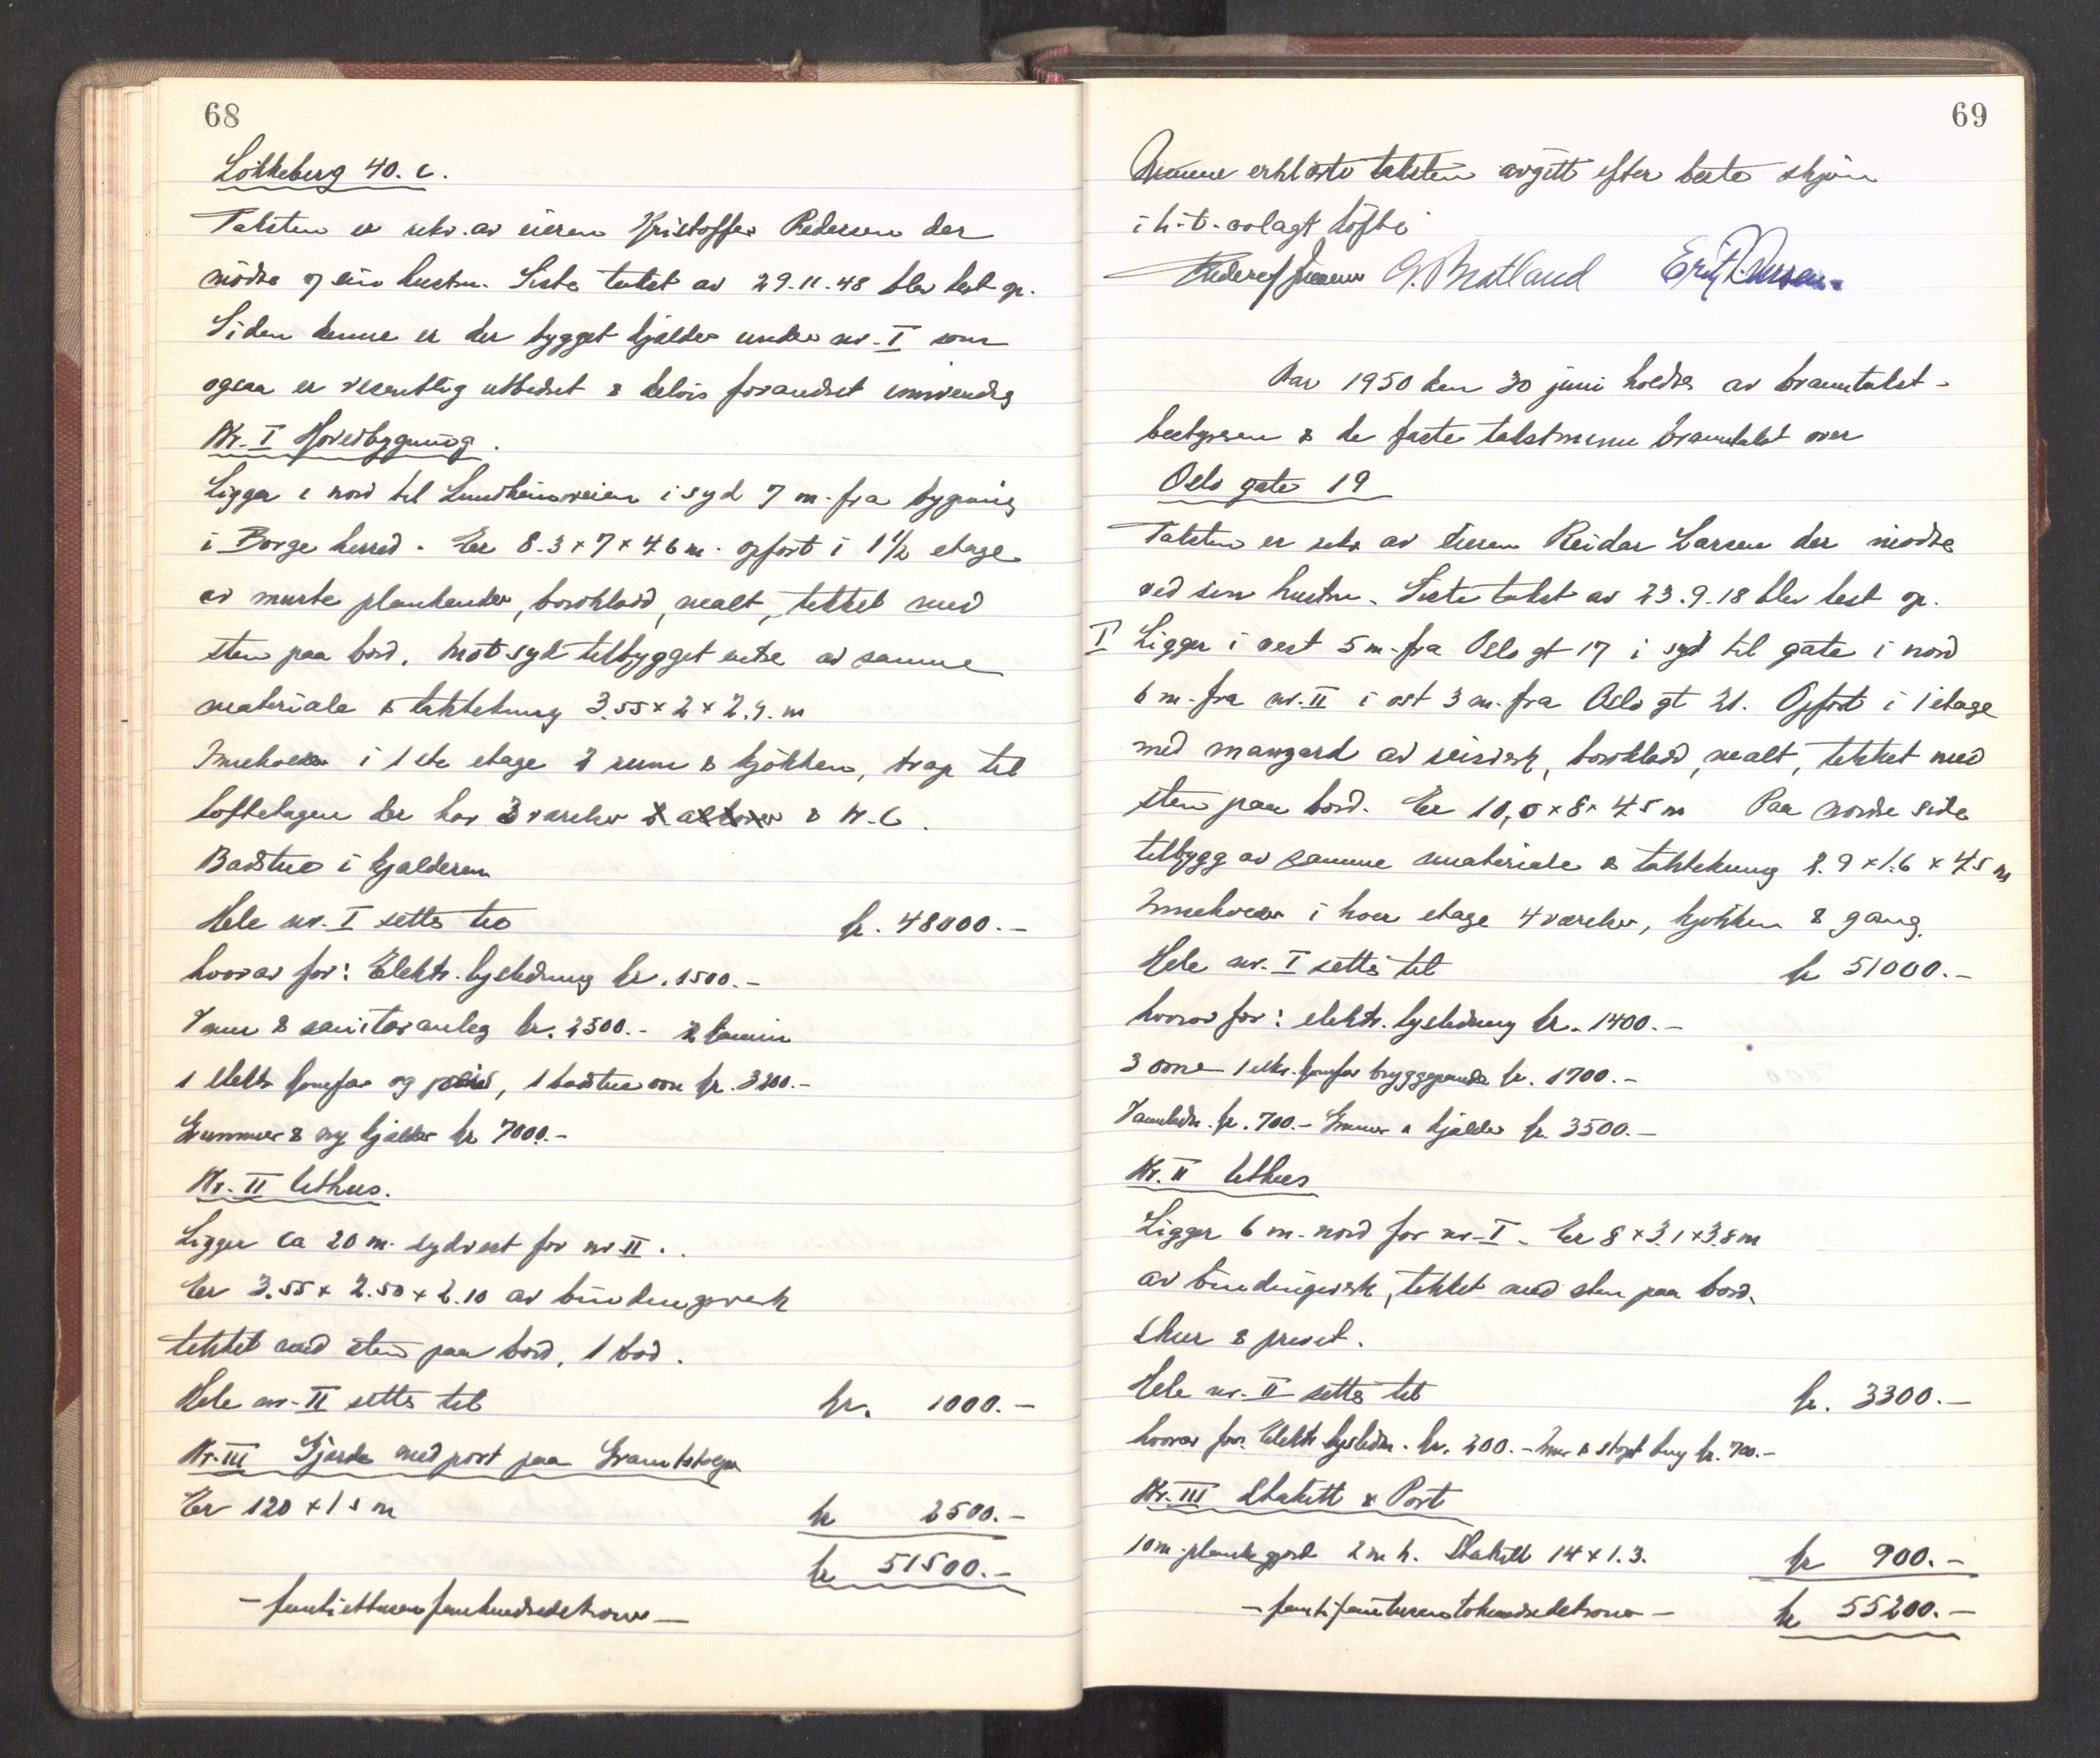 68
Lökkeberg 40. c.
Taksten er rekv. av eieren Kristoffer Pedersen der
mödte og sin hustru. Siste takst av 29.11.48 blev lest op.
Siden denne er der bygget kjælder under nr. I som
ogsaa er vesentlig utbedret & delvis forandret innvendig
Nr. I Hovedbygning.
Ligger i nord til Lundheimveien i syd 7 m. fra bygning
i Borge herred. Er 8.3 x 7 x 4.6 m. opfört i 1 1/2 etage
av murte plankender, bordklædd, malt, tekket med
sten paa bord. Mot syd tilbygget entre av samme
materiale & taktekning 3.55 x 2 x 2.9. m
Inneholder i 1ste etage 2 rum & kjökken, trap til
loftetagen der har 3 værelser & alkover & W.C.
Badstue i kjælderen
Hele nr. I settes til kr. 48000.-
hvorav for: Elektr. lysledning kr. 1500.-
Vann & sanitæranleg kr. 2500.- 2 kamin
1 elektr. komfyr og peis, 1 badstueovn kr. 3200.-
Grunnmur & ny kjælder kr 7000.-
Nr. II Uthus.
Ligger ca 20 m. sydvest for nr II.
Er 3.55 x 2.50 x 2.10 av bindingsverk
tekket med sten paa bord, 1 bod.
Hele nr. II settes til kr. 1000.-
Nr. III Gjerde med port paa Granitstolper
Er 120 x 1 s m kr 2500.-
kr 51500.-
- femtiettusenfemhundredekroner -
69
Mennene erklærte taksten avgitt efter beste skjön
i h. t. avlagt löfte
G. Bratland
Aar 1950 den 30 juni holdtes av branntakst-
bestyreren & de faste takstmenn branntakst over
Oslo gate 19
Taksten er rekv av Eieren Reidar Larsen der mödte
ved sin hustru. Siste takst av 23.9.18 blev lest op.
I Ligger i vest 5 m. fra Oslo gt 17 i syd til gate i nord
6 m. fra nr. II i öst 3 m. fra Oslo gt 21. Opfört i 1 etage
med manzard av reisverk, bordklædd, malt, tekket med
sten paa bord. Er 10,0 x 8 x 4.5 m Paa nordre side
tilbygg av samme materiale & taktekning 2.9 x 1.6 x 4.5 m
Inneholder i hver etage 4 værelser, kjökken & gang.
Hele nr. I settes til kr 51000.-
hvorav for: elektr. lysledning kr. 1400.-
3 ovne 1 elkr. komfyr bryggepande kr. 1700.-
Vannledn. kr. 700.- Grunnmur & kjælder kr. 3500.-
Nr. II Uthus
Ligger 6 m. nord for nr. I. Er 8 x 3.1 x 3.8 m
av bindingsverk, tekket med sten paa bord.
Skur & privet.
Hele nr. II settes til kr. 3300.-
hvorav for: Elektr lysledn. kr. 200.- Mur & stöpt kr. 700.-
Nr. III Stakitt & Port
10 m. plankegjerd 2 m h. Stakitt 14 x 1.3. kr 900.-
- femtifemtusentohundredekroner - kr 55200.-